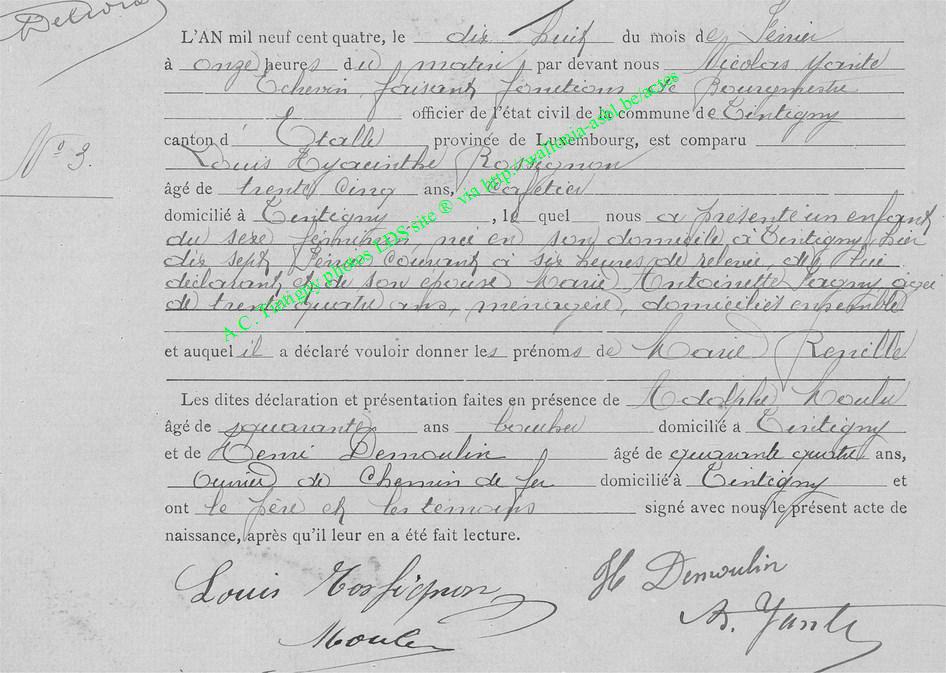 L'AN mil neuf cent quatre, le dix huit du mois de Février
à onze heures du matin par devant nous Nicolas Yante
Echevin faisant fonctions de Bourgmestre
officier de l'état civil de la commune de Tintigny
canton d' Etalle province de Luxembourg, est comparu
Louis Hyacinthe Rossignon
âgé de trente cinq ans, Cafetier
domicilié à Tintigny, lequel nous a présenté un enfant
No 3.
du sexe féminin né en son domicile, à Tintigny hier
dix sept Février courant à six heures de relevée, de lui
déclarant et de son épouse Marie Antoinette agée
de trente quatre ans, ménagère, domiciliés ensemble
et auquel il a déclaré vouloir donner les prénoms de Marie Renelle
Les dites déclaration et présentation faites en présence de Adolphe Moulu
âgé de quarante ans boucher domicilié à Tintigny
et de Henri Demoulin âgé de quarante quatre ans,
Ouvrier de Chemin de fer domicilié à Tintigny et
ont le père et les témoins signé avec nous le présent acte de
naissance, après qu'il leur en a été fait lecture.
Louis Rossignon
H Demoulin
N. Yante
A.C. Tintigny photos LDS site ® via http://wallonia-asbl.be/actes